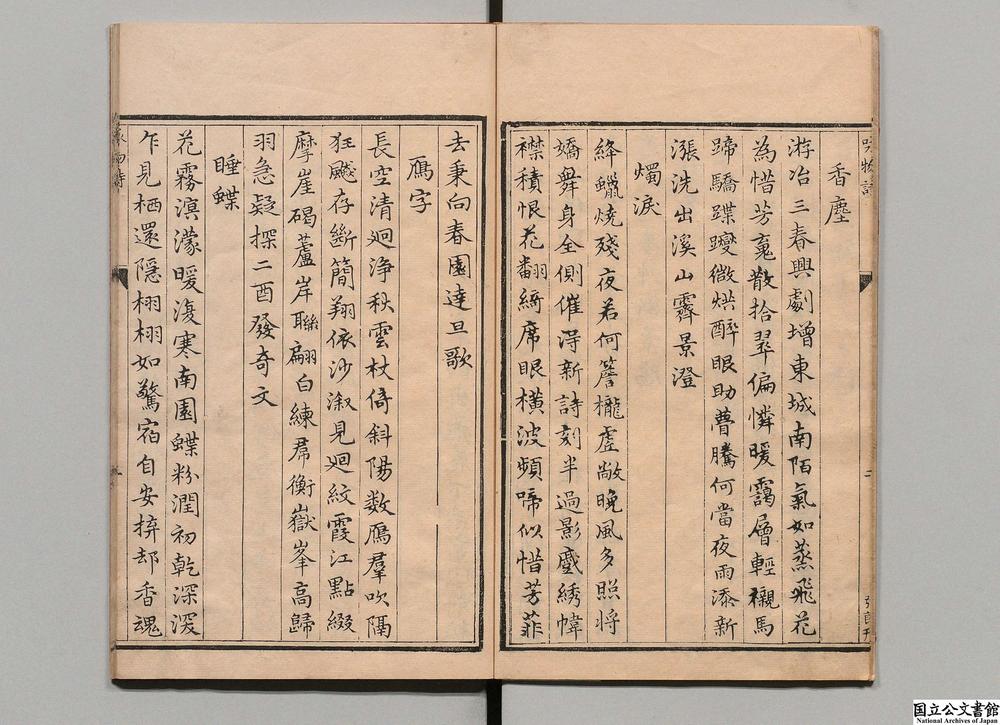 詠物詩
香塵
游冶三春興劇增東城南陌氣如蒸飛花
為惜芳䰟散拾翠偏憐暖靄層輕襯馬
蹄驕蹀躞微烘醉眼助瞢騰何當夜雨添新
漲洗出溪山霽景澄
燭淚
絳蠟燒殘夜若何簷櫳虛敞晚風多照將
嬌舞身全側催得新詩刻半過影蹙綉幃
襟積恨花翻綺席眼橫波頻啼似惜芳菲
去秉向春園達旦歌
鴈字
長空清迥淨秋雲杖倚斜陽数鴈羣吹隔
狂飈存斷簡翔依沙溆見迴紋霞江點綴
摩崖碣蘆岸聯翩白練帬衡嶽峯高歸
羽急疑探二酉發奇文
睡蝶
花霧溟濛暖復寒南園蝶粉潤初乾深深
乍見栖還隱栩栩如驚宿自安拚却香魂
国立公文書館
National Archives of Japan